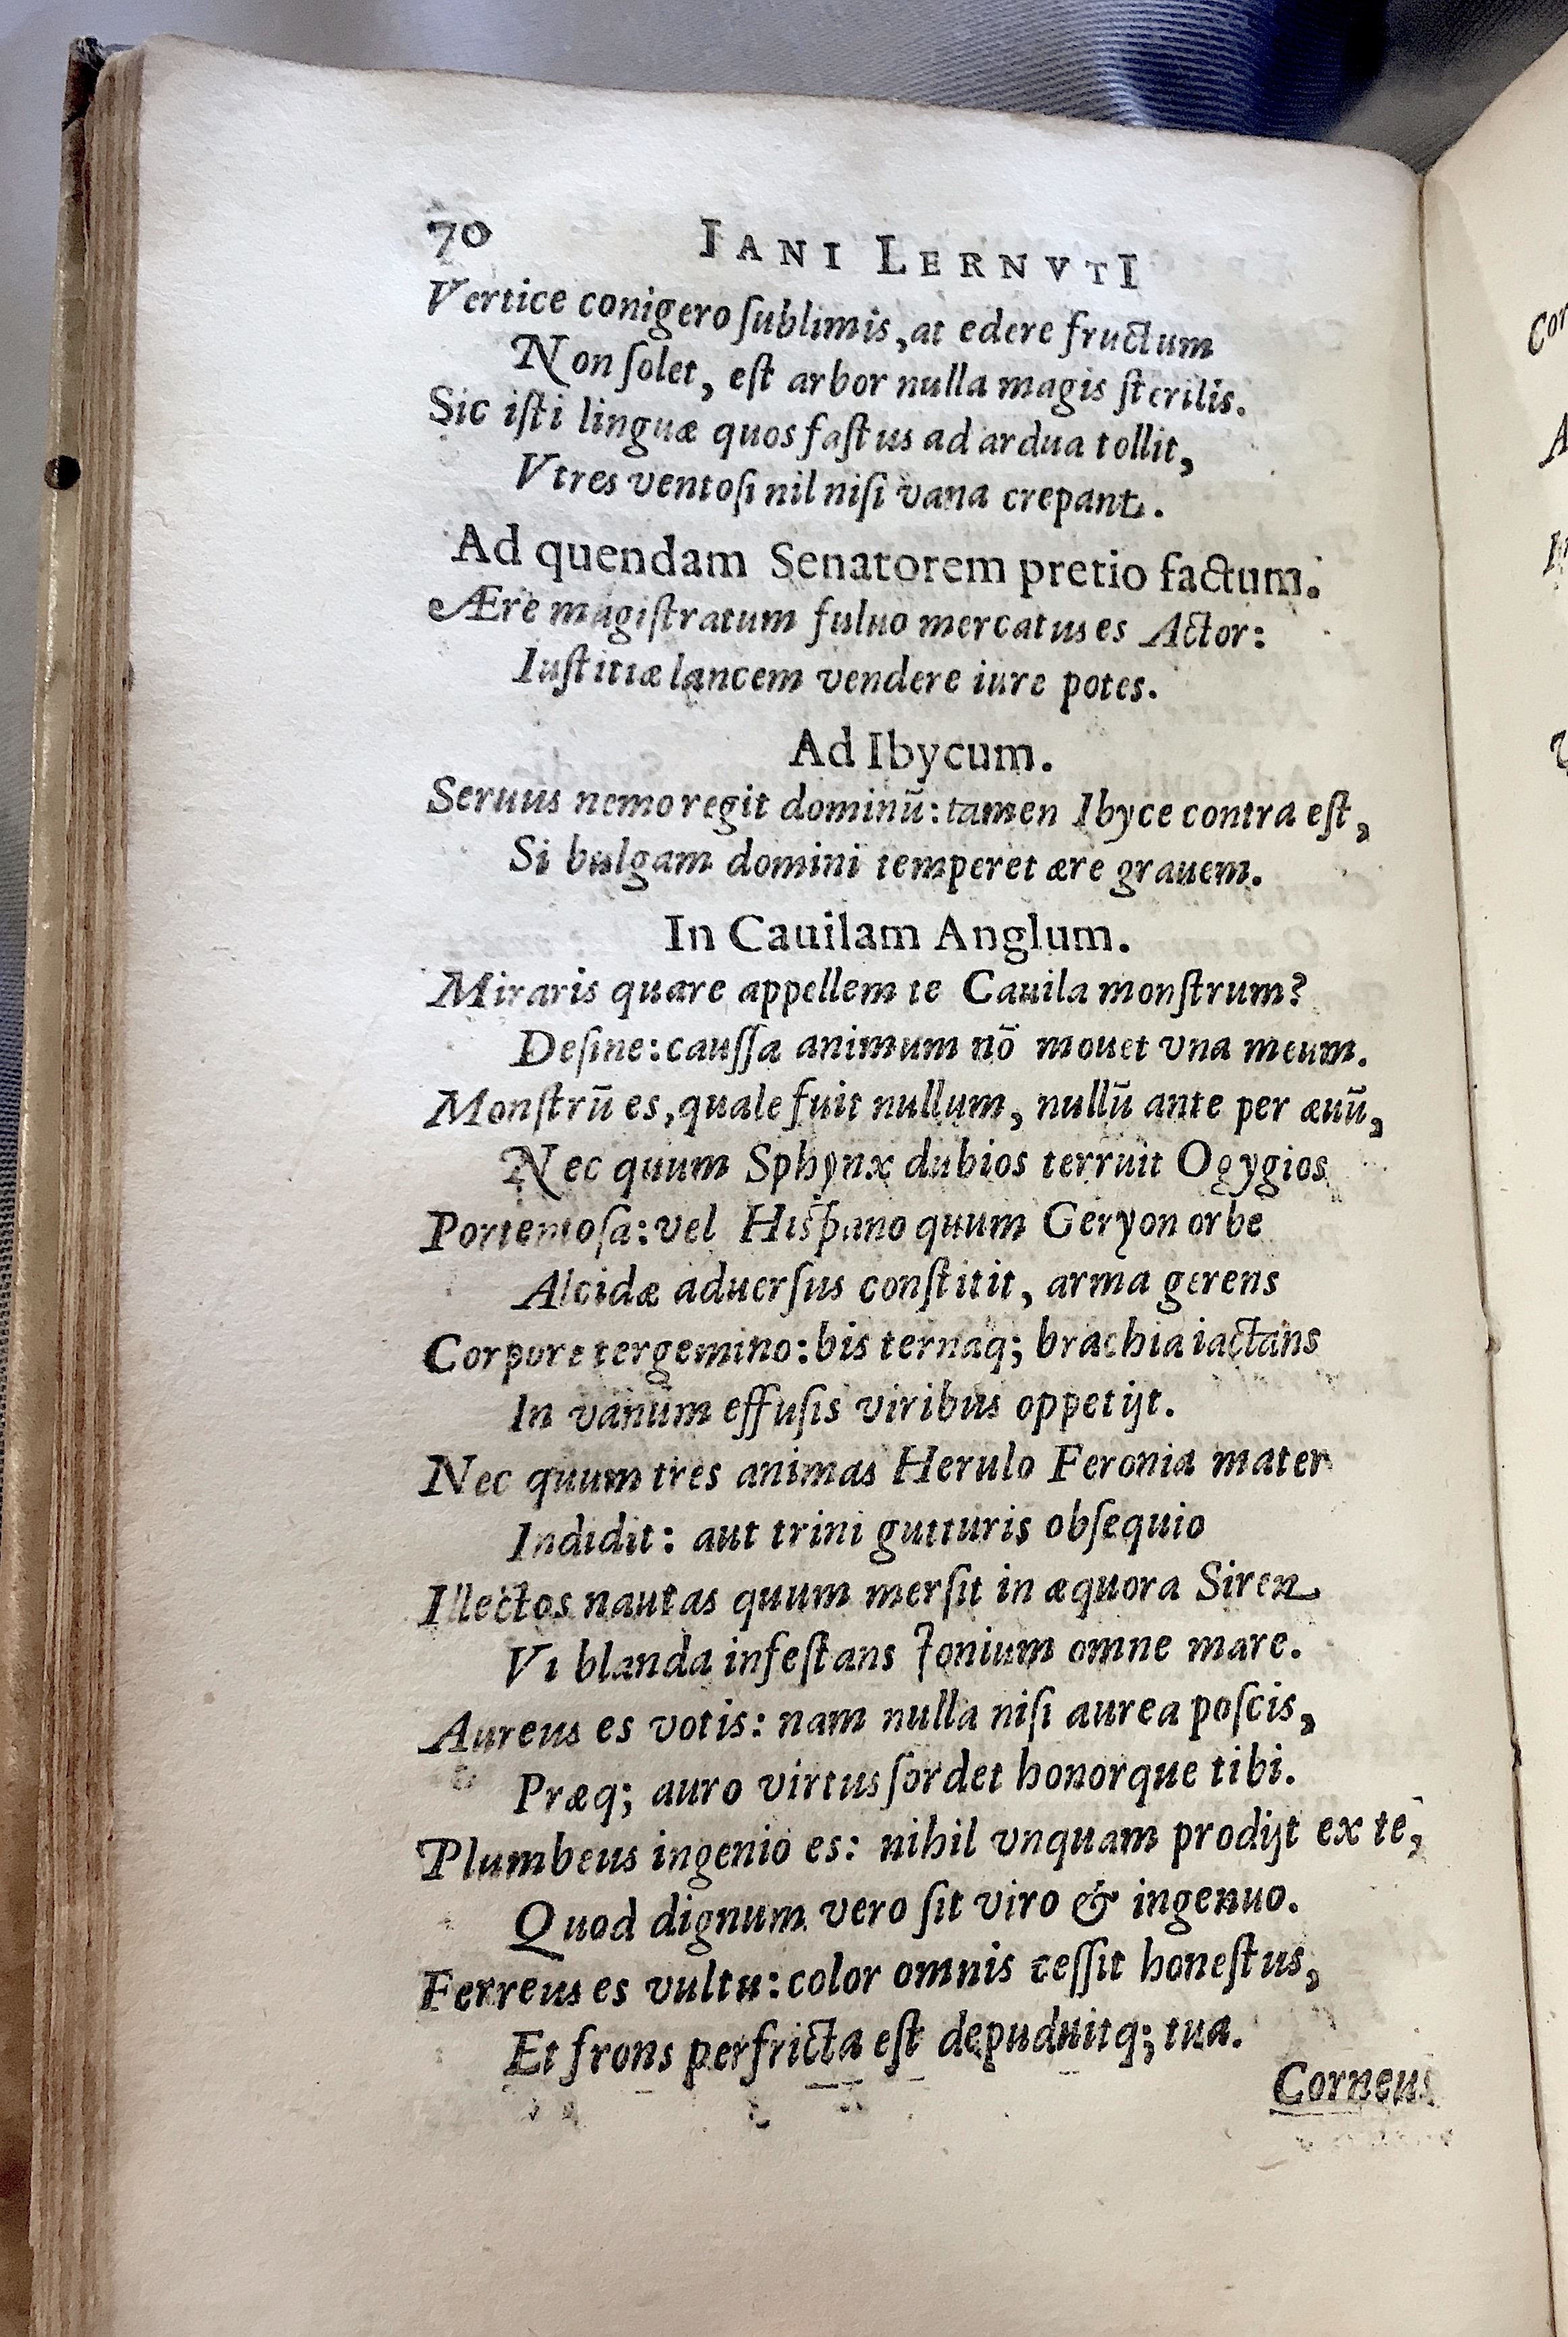 70 IANI LERNVTI
Vertice conigero ſublimis, at edere fructum
Non ſolet, eſt arbor nulla magis ſterilis.
Sic iſti linguæ quos faſtus ad ardua tollit,
Vtres ventoſi nil niſi vana crepant.
Ad quendam Senatorem pretio factum.
Ære magiſtratum fuluo mercatus es Actor:
Iuſtitiæ lancem vendere iure potes.
Ad Ibycum.
Seruus nemo regit dominū: tamen Ibyce contra eſt,
Si bulgam domini temperet ære grauem.
In Cauilam Anglum.
Miraris quare appellem te Cauila monſtrum?
Deſine: cauſſa animum nō mouet vna meum.
Monſtrū es, quale fuit nullum, nullū ante per æuū,
Nec quum Sphynx dubios terruit Ogygios
Portentoſa: vel Hiſpano quum Geryon orbe
Alcidæ aduerſus conſtitit, arma gerens
Corpore tergemino: bis ternaq; brachia iactans
In vanum effuſis viribus oppetijt.
Nec quum tres animas Herulo Feronia mater
Indidit: aut trini gutturis obſequio
Illectos nautas quum merſit in æquora Siren
Vi blanda infeſtans Ionium omne mare.
Aureus es votis: nam nulla niſi aurea poſcis,
Præq; auro virtus ſordet honorque tibi.
Plumbeus ingenio es: nihil vnquam prodijt ex te,
Quod dignum vero ſit viro & ingenuo.
Ferreus es vultu: color omnis ceſſit honeſtus,
Et frons perfricta eſt depuduitq; tua.
Corneus